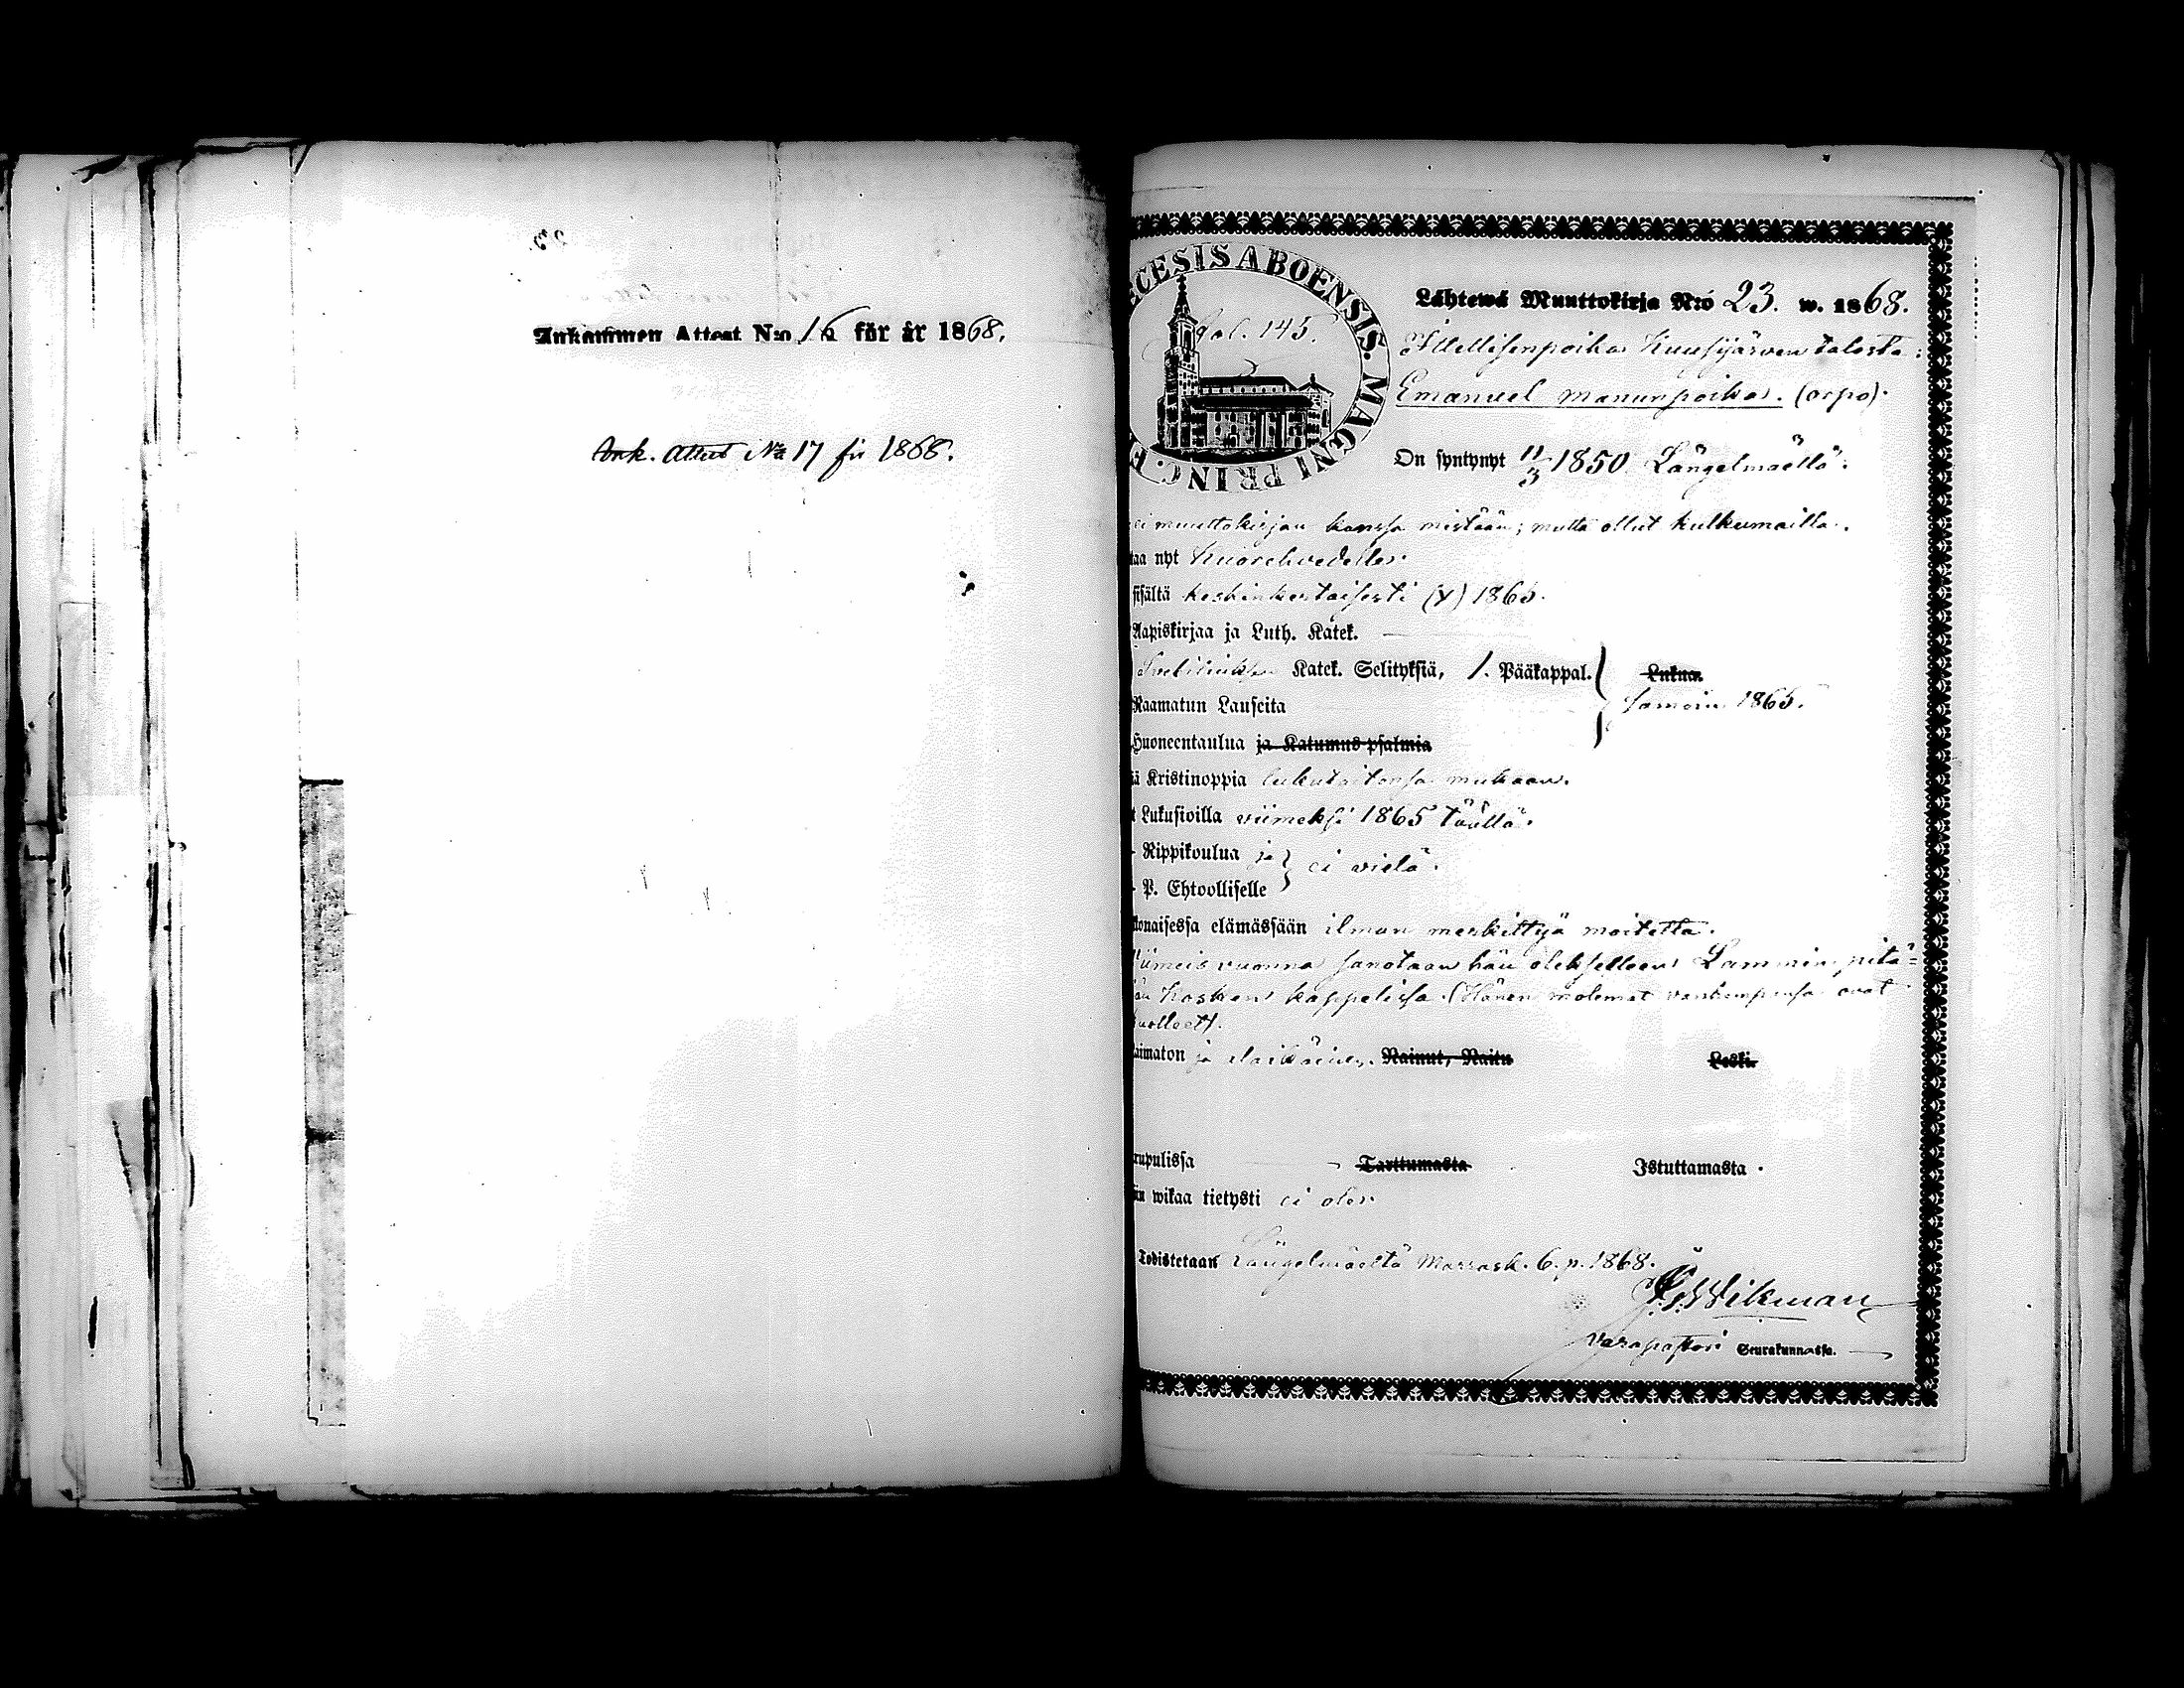 Ankommen Attest N:o 16 för år 1868.
Ank. Attest No 17 för 1868.
ECESIS ABOENSIS. MAGNI PRINC. F
Fol. 145.
Lähtewä Muuttokirja N:o 23. w. 1868.
Itsellisenpoika Kuusijärven talosta:
Emanuel Manunpoika. (orpo).
On syntynyt 11/3 1850 Längelmäellä.
ei muuttokirjan kanssa mistään; mutta ollut kulkumailla.
taa nyt Kuorehvedelle.
sisältä keskinkertaisesti (x) 1865.
Aapiskirjaa ja Luth. Katek.
Svebiliuksen Katek. Selityksiä, 1. Pääkappal. Lukua.
Raamatun Lauseita samoin 1865.
Huoneentaulua ja Katumus-psalmia
ä Kristinoppia lukutaitonsa mukaan.
t Lukusioilla viimeksi 1865 täällä.
Rippikoulua ja ei vielä.
P. Ehtoolliselle
onaisessa elämässään ilman merkittyjä moitetta.
Viimeis vuonna sanotaan hän olekselleen Lammin pitä=
än Kosken kappelissa. (Hänen molemat vanhempansa ovat
kuolleet).
aimaton ja alaikäinen. Nainut, Naitu Leski.
rupulissa Tarttumasta Istuttamasta.
in wikaa tietysti ei ole.
Todistetaan Längelmäeltä Marrask. 6. p. 1868.
Wikman
varapastori Seurakunnassa.